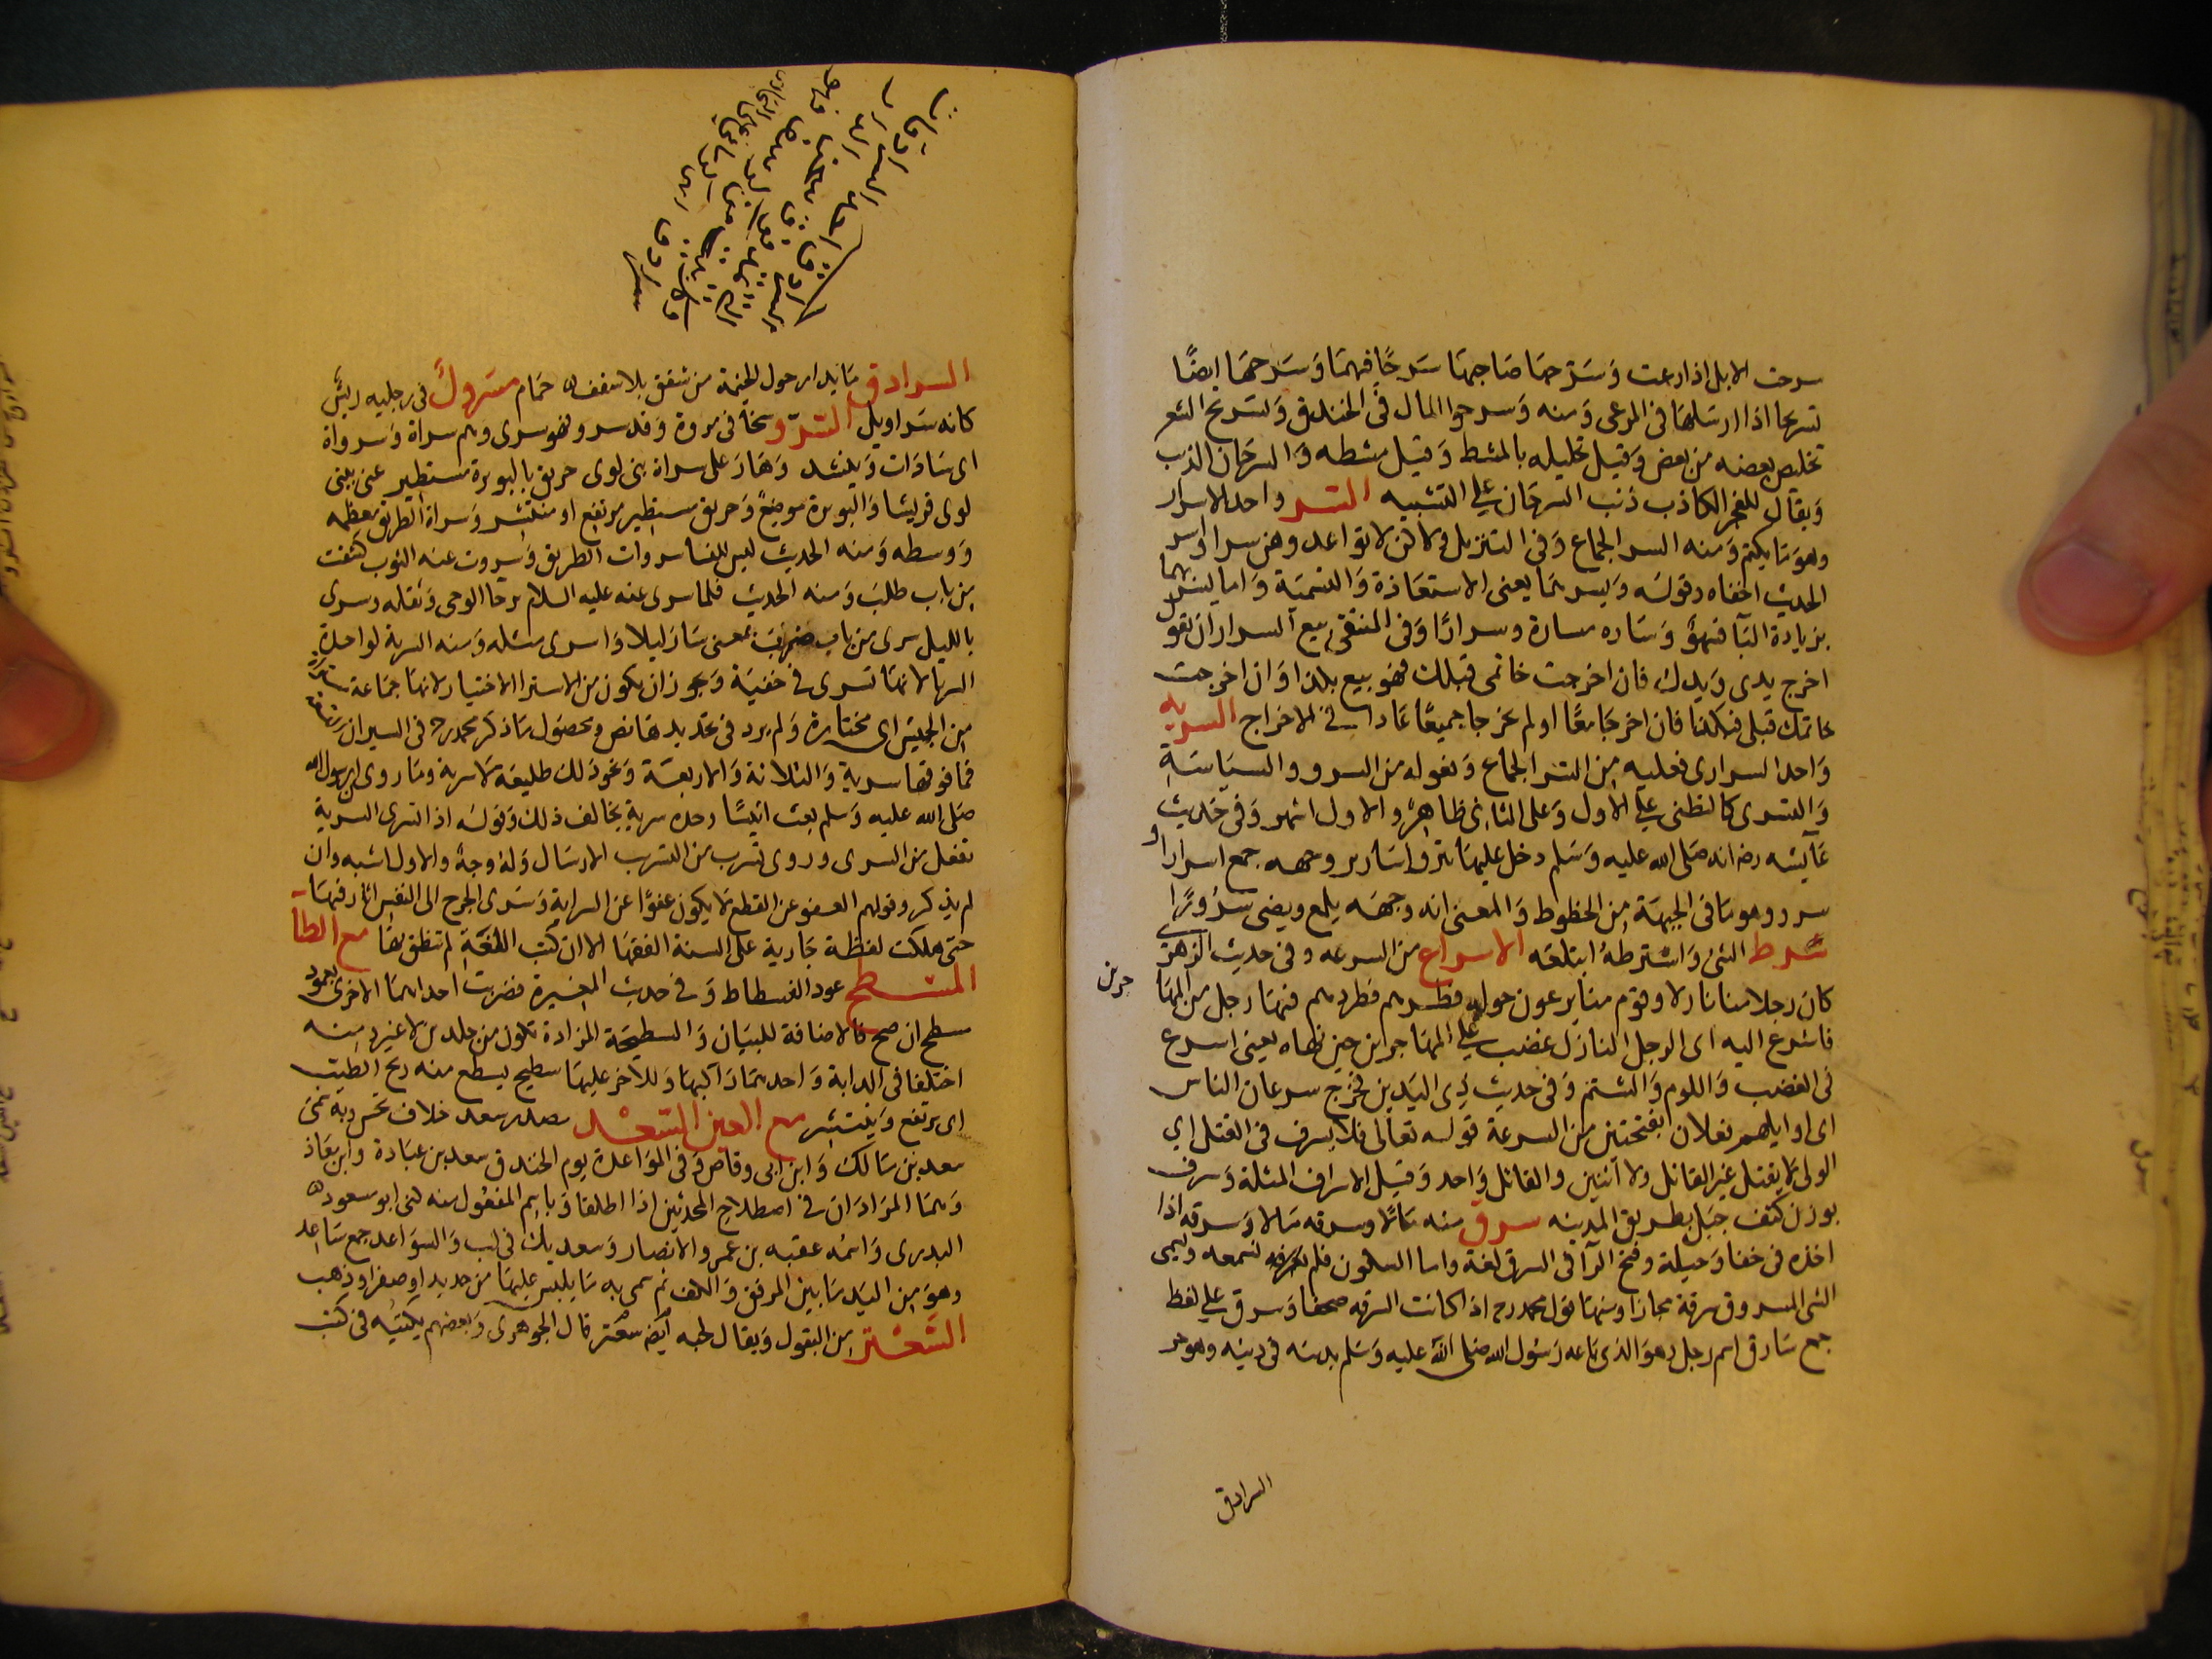 سرحت الابل اذا رعت وسرحها صاحبها سرحا فيهما وسرحها ايضا
تسريحا اذا ارسلها في المرعى ومنه وسرحوا المال في الخندق وتسريح الشعر
تخليص بعضه من بعض وقيل تخليله بالمشط وقيل مشطه والسرحان الذئب
ويقال للفجر الكاذب ذنب السرحان على التشبيه السر واحد الاسرار
وهو ما يكتم ومنه السر الجماع وفي التنزيل ولا كن لا تواعدوهن سرا واسر
الحديث اخفاه وقوله ويسر بهما يعني الاستعاذة والتسمية واما يسر بهما
بزيادة البا فسهو وساره مسارة وسرارا وفي المنتقى بيع السرار ان تقول
اخرج يدي ويدك فان اخرجت خاتمي قبلك فهو بيع بكذا وان اخرجت
خاتمك قبلي فبكذا فان اخرجا معا او لم يخرجا جميعا عادا في الاخراج السرية
واحدة السراري فعلية من السر الجماع او فعوله من السرو والسيادة
والتسري كالتظني على الاول وعلى الثاني ظاهر والاول اشهر وفي حديث
عايشه رضه انه صلى الله عليه وسلم دخل عليها تبرق اسارير وجهه جمع اسرار او
سرر وهو ما في الجبهة من الخطوط والمعنى ان وجهه يلمع ويضئ سرورا
سرط الشئ واسترطه ابتلعه الاسراع من السرعه وفي حديث الزهري
كان رجلا منا نازلا وقوم منا يرعون حوله فطردهم فنهاه رجل من المهاجرين
فاسرع اليه اي الرجل النازل غضب على المهاجر اين حين نهاه يعني اسرع
في الغضب واللوم والشتم وفي حديث ذي اليدين فخرج سرعان الناس
اي اوايلهم فعلان بفتحتين من السرعة قوله تعالى فلا يسرف في القتل اي
الولي لا يقتل غير القاتل ولا اثنين والقاتل واحد وقيل الاسراف المثلة وسرف
بوزن كتف جبل بطريق المدينه سرق منه مالا وسرقه مالا وسرقه اذا
اخذه في خفا وحيلة وفتح الرآ في السرق لغة واما السكون فلم نسمعه ويسمى
الشي المسروق سرقة مجازا ومنها قول محمد رح اذا كانت السرقه صحفا وسرق على لفظ
جمع سارق اسم رجل وهو الذي باعه رسول الله صلى الله عليه وسلم بدينه وهو حر
السرادق
السرادق ما يدار حول الخيمة من شقق بلا سقف حمام مسرول في رجليه ريش
كانه سراويل السرو سخا في مروة وقد سرو فهو سري وهم سراة وسرواة
اي سادات وينشد وهان على سراة بني لوي حريق بالبويرة مستطير عنى ببني
لوي قريشا والبويرة موضع وحريق مستطير مرتفع او منتشر وسراة الطريق معظمه
ووسطه ومنه الحديث ليس للنساء سروات الطريق وسروت عنه الثوب كشفت
من باب طلب ومنه الحديث فلما سري عنه عليه السلام برحا الوحي وثقله وسرى
بالليل سرى من باب ضرب بمعنى سار ليلا واسرى مثله ومنه السرية لواحدة
السرايا لانها تسري في خفية ويجوز ان يكون من الاسترا الاختيار لانها جماعة
من الجيش اي مختارة ولم يرد في تحديدها نص ومحصول ما ذكر محمد رح في السير ان
فما فوقها سرية والثلاثة والاربعة ونحو ذلك طليعة لا سرية وما روي ان رسول الله
صلى الله عليه وسلم بعث انيسا وحده سرية يخالف ذلك وقوله اذا تسرى السرية
تفعل من السرى وروي تسرب من التسرب الارسال وله وجه والاول اشبه وان
لم يذكر وقولهم العفو عن القطع لا يكون عفوا عن السراية وسرى الجرح الى النفس اثر فيها
حتى هلكت لفظة جارية على السنة الفقها الا ان كتب اللغة لم تنطق بها مع الطآ
المسطح عود الفسطاط وفي حديث المغيرة فضربت احداهما الاخرى بعمود
سطح ان صح فالاضافة للبيان والسطيحة المزادة تكون من جلدين لا غير ومنه
اختلفا في الدابة واحدهما راكبها وللآخر عليها سطيح يسطع منه ريح الطيب
اي يرتفع وينتشر مع العين السعد مصدر سعد خلاف نحس وبه سمي
سعد بن مالك وابن ابي وقاص وفي المواعدة يوم الخندق سعد بن عبادة وابن معاذ
وهما المرادان في اصطلاح المحدثين اذا اطلقا وباسم المفعول منه كني ابو مسعود
البدري واسمه عقبه بن عمرو الانصار وسعديك في لب والسواعد جمع ساعد
وهو من اليد ما بين المرفق والكف ثم سمي به ما يلبس عليها من حديد او صفر او ذهب
السعتر من البقول ويقال لحبه ايضا سعتر قال الجوهري وبعضهم يكتبه في كتب